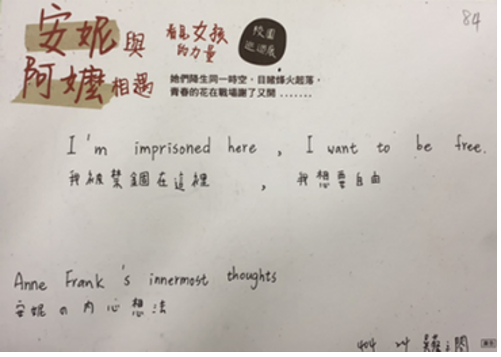 84
安妮與
阿嬤相遇
看見女孩
的力量
校園
巡迴展
她們降生同一時空,目睹烽火起落,
青春的花在戰場謝了又開.......
I'm imprisoned here , I want to be free.
我被禁錮在這裡 , 我想要自由
Anne Frank 's innermost thoughts
安妮の內心想法
404 24